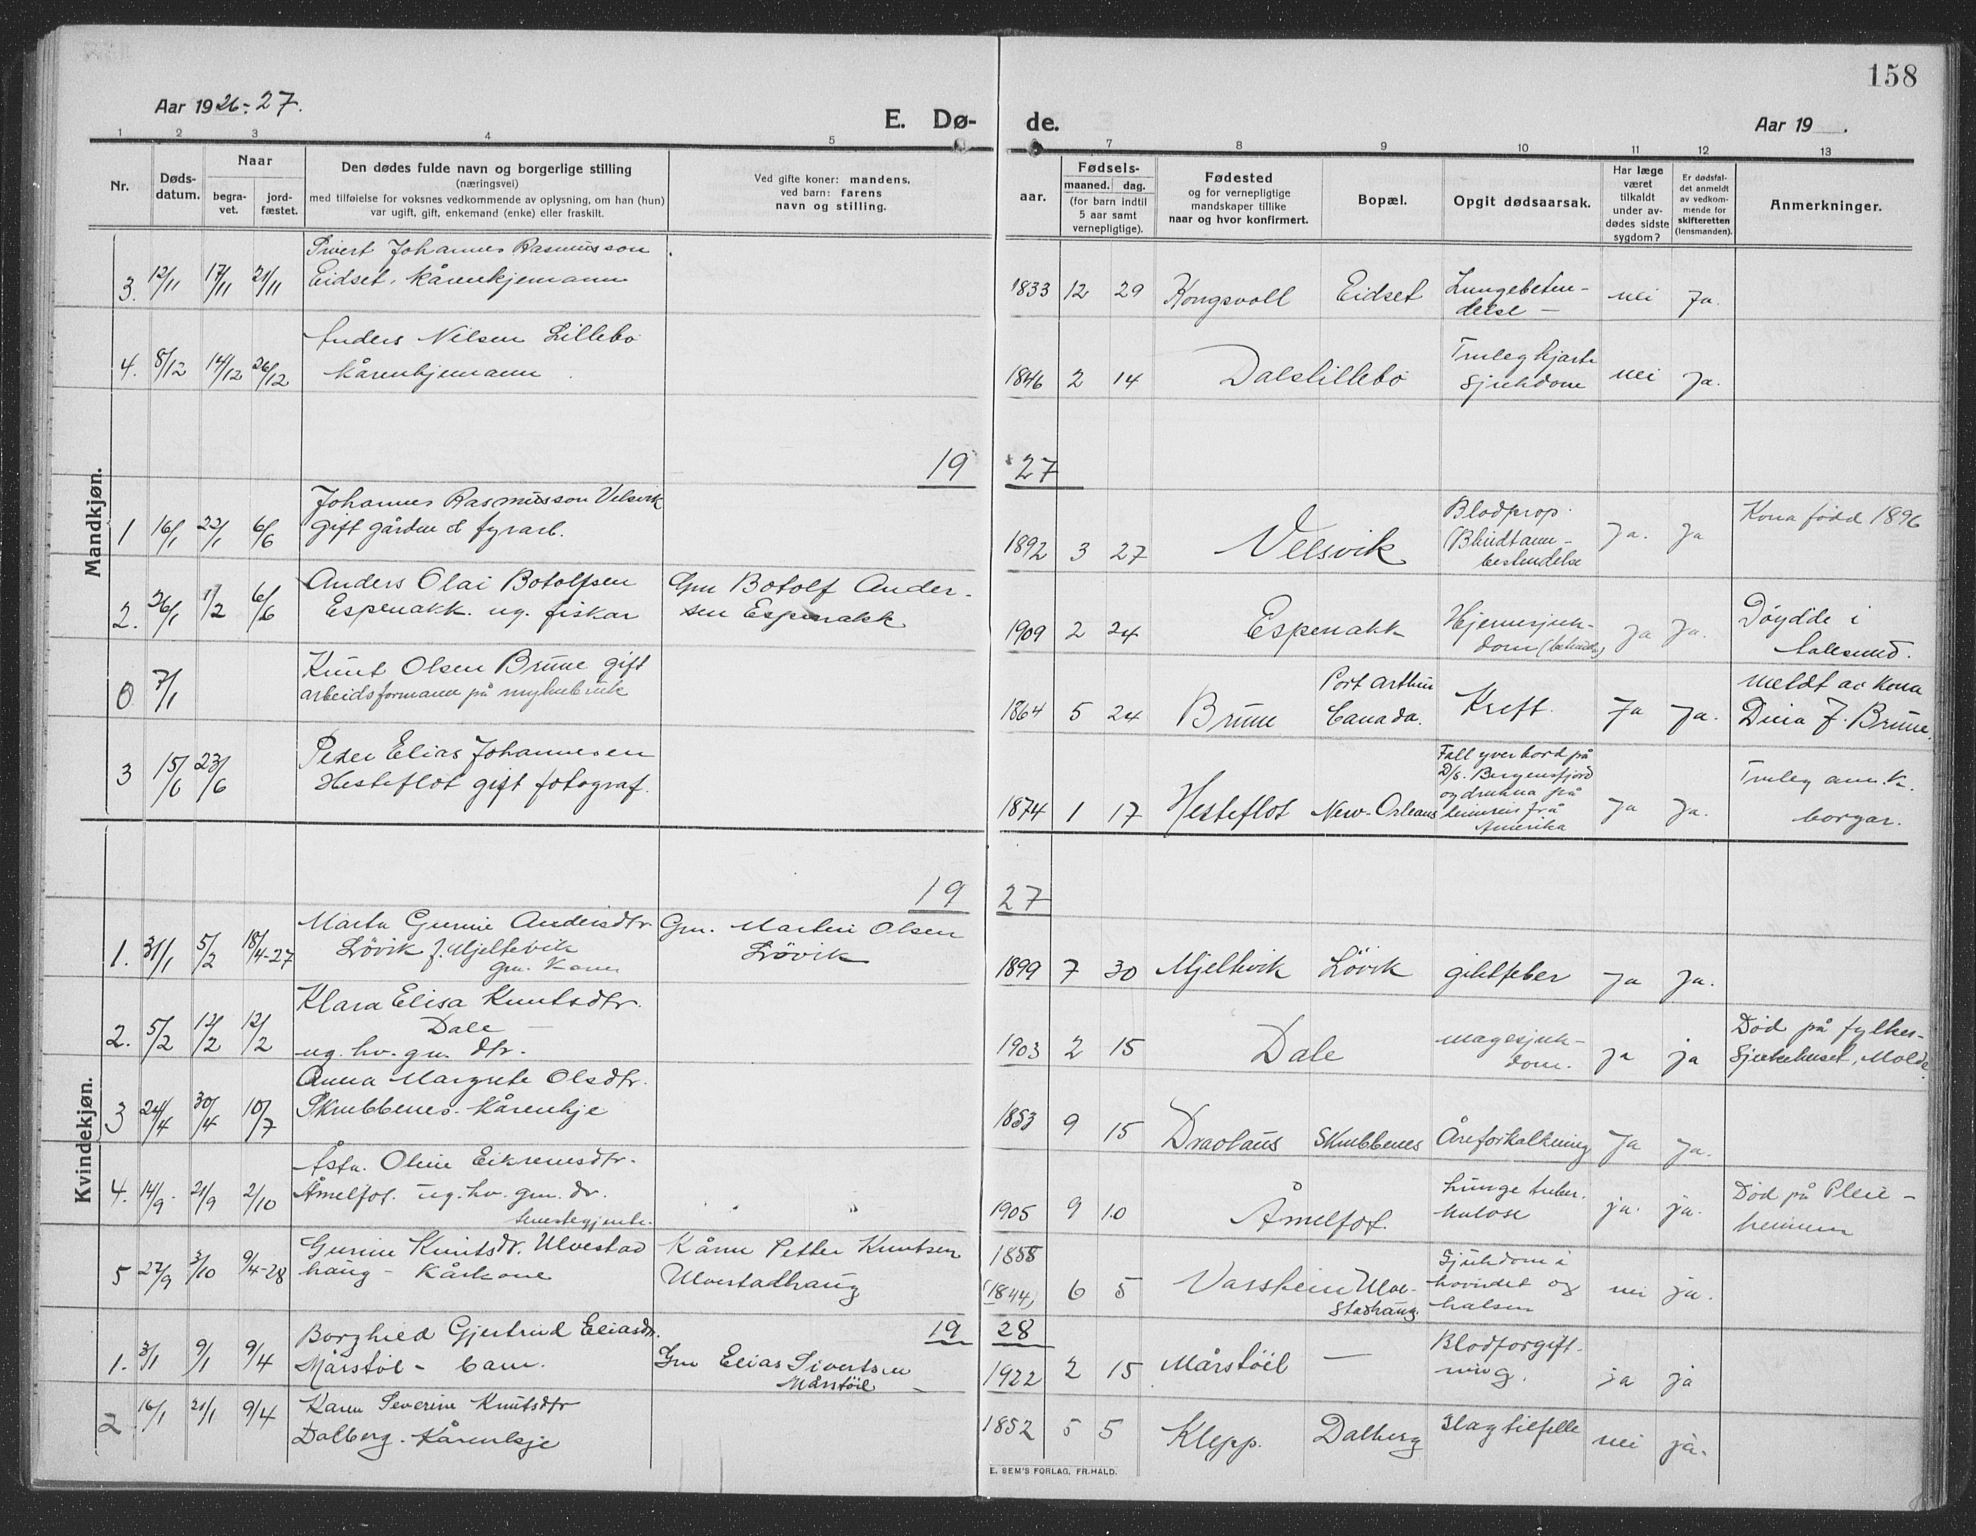 158
Aar 1926-27.
E. Dø-
de.
Aar 19 .
1 2 3 4 5 7 8 9 10 11 12 13
Nr.
Døds-
datum.
Naar
begra-
vet.
jord-
fæstet.
Den dødes fulde navn og borgerlige stilling
(næringsvei)
med tilføielse for voksnes vedkommende av oplysning, om han (hun)
var ugift, gift, enkemand (enke) eller fraskilt.
Ved gifte koner: mandens,
ved barn: farens
navn og stilling.
Fødsels-
aar.
maaned. dag.
(for barn indtil
5 aar samt
vernepligtige).
Fødested
og for vernepligtige
mandskaper tillike
naar og hvor konfirmert.
Bopæl.
Opgit dødsaarsak.
Har læge
været
tilkaldt
under av-
dødes sidste
sygdom?
Er dødsfal-
det anmeldt
av vedkom-
mende for
skifteretten
(lensmanden).
Anmerkninger.
Mandkjøn.
3. 12/11 17/11 21/11
Sivert Johannes Rasmusson
Eidset. kårenkjemann
1833 12 29 Kongsvoll Eidset
Lungebeten-
delse -
nei Ja.
4. 8/12 14/12 26/12
Anders Nilsen Lillebø
kårenkjemann
1846 2 14 Dalslillebø
Truleg hjarte
sjukdom
nei Ja.
19 27
1 16/1 22/1 6/6
Johannes Rasmusson Velsvik
gift gårdm. & fyrarb.
1892 3 27 Velsvik
Blodprop.
bestendelse
Ja. Ja
Kona fødd 1896
2. 26/1 1/2 6/6
Anders Olai Botolfsen
Espenakk. ug. fiskar
Gm Botolf Ander-
sen Espenakk
1909 2 24 Espenakk
Hjernesjuk-
dom
ja Ja.
Døydde i
Aalesund.
0 7/1
Knut Olsen Brune gift
arbeidsformann på
1864 5 24 Brune
Port Arthur
Canada.
Kreft.
Ja Ja.
Meldt av kona
Dina J. Brune.
3 15/6 23/6
Peder Elias Johannesen
Hesteflot gift fotograf.
1874 1 17 Hesteflot New-Orleans
Fall yver bord på
D/s. Bergensfjord
og drukna på
heimreis frå
Amerika
Ja Ja.
Truleg am.k.
borgar.
Kvindekjøn.
19 27
1. 31/1 5/2 18/4-27
Marta Gurine Andersdtr
Løvik f. Mjeltevik
gm. kone
Gm. Martin Olsen
Løvik
1899 7 30 Mjeltevik Løvik giktfeber ja Ja.
2. 5/2 12/2 12/2
Klara Elisa Knutsdtr.
Dale -
ug. hv. gm. dtr.
1903 2 15 Dale
magesjuk-
dom.
ja ja
Død på fylkes-
sjukehuset, Molde.
3 24/4 30/4 10/7
Anna Margrete Olsdtr.
Skrubbenes. kårenkje
1853 9 15 Draolaus Skrubbenes Åreforkalkning Ja Ja.
4. 14/9 21/9 2/10
Åsta. Oline Eikremsdtr.
Åmelfot. ug. hv. gm. dr.
tenestegjente.
" "
1905 9 10 Åmelfot.
Lunge tuber.
kulose
ja. ja.
Død på Pleie-
heimen
5 27/9 3/10 9/4-28
Gurine Knutsdr. Ulvestad
haug - kårkone
Kårm Petter Knutsen
Ulvestadhaug
1855
(1844) 6 5
Ulve-
stadhaug.
Sjukdom i
hovudet og
halsen
nei ja.
19 28
1. 3/1 9/1 9/4
Borghild Gjertrud Eliasdr.
Mårstøl - barn.
Gm Elias Sivertsen
Mårstøil
1922 2 15 Mårstøil -
Blodforgift-
ning.
ja ja
2 16/1 21/1 9/4
Karen Severine Knutsdtr
Dalberg. Kårenkje
1852 5 5 Klepp. Dalberg Slagtilfelle nei ja.
E. SEM'S FORLAG, FR.HALD.